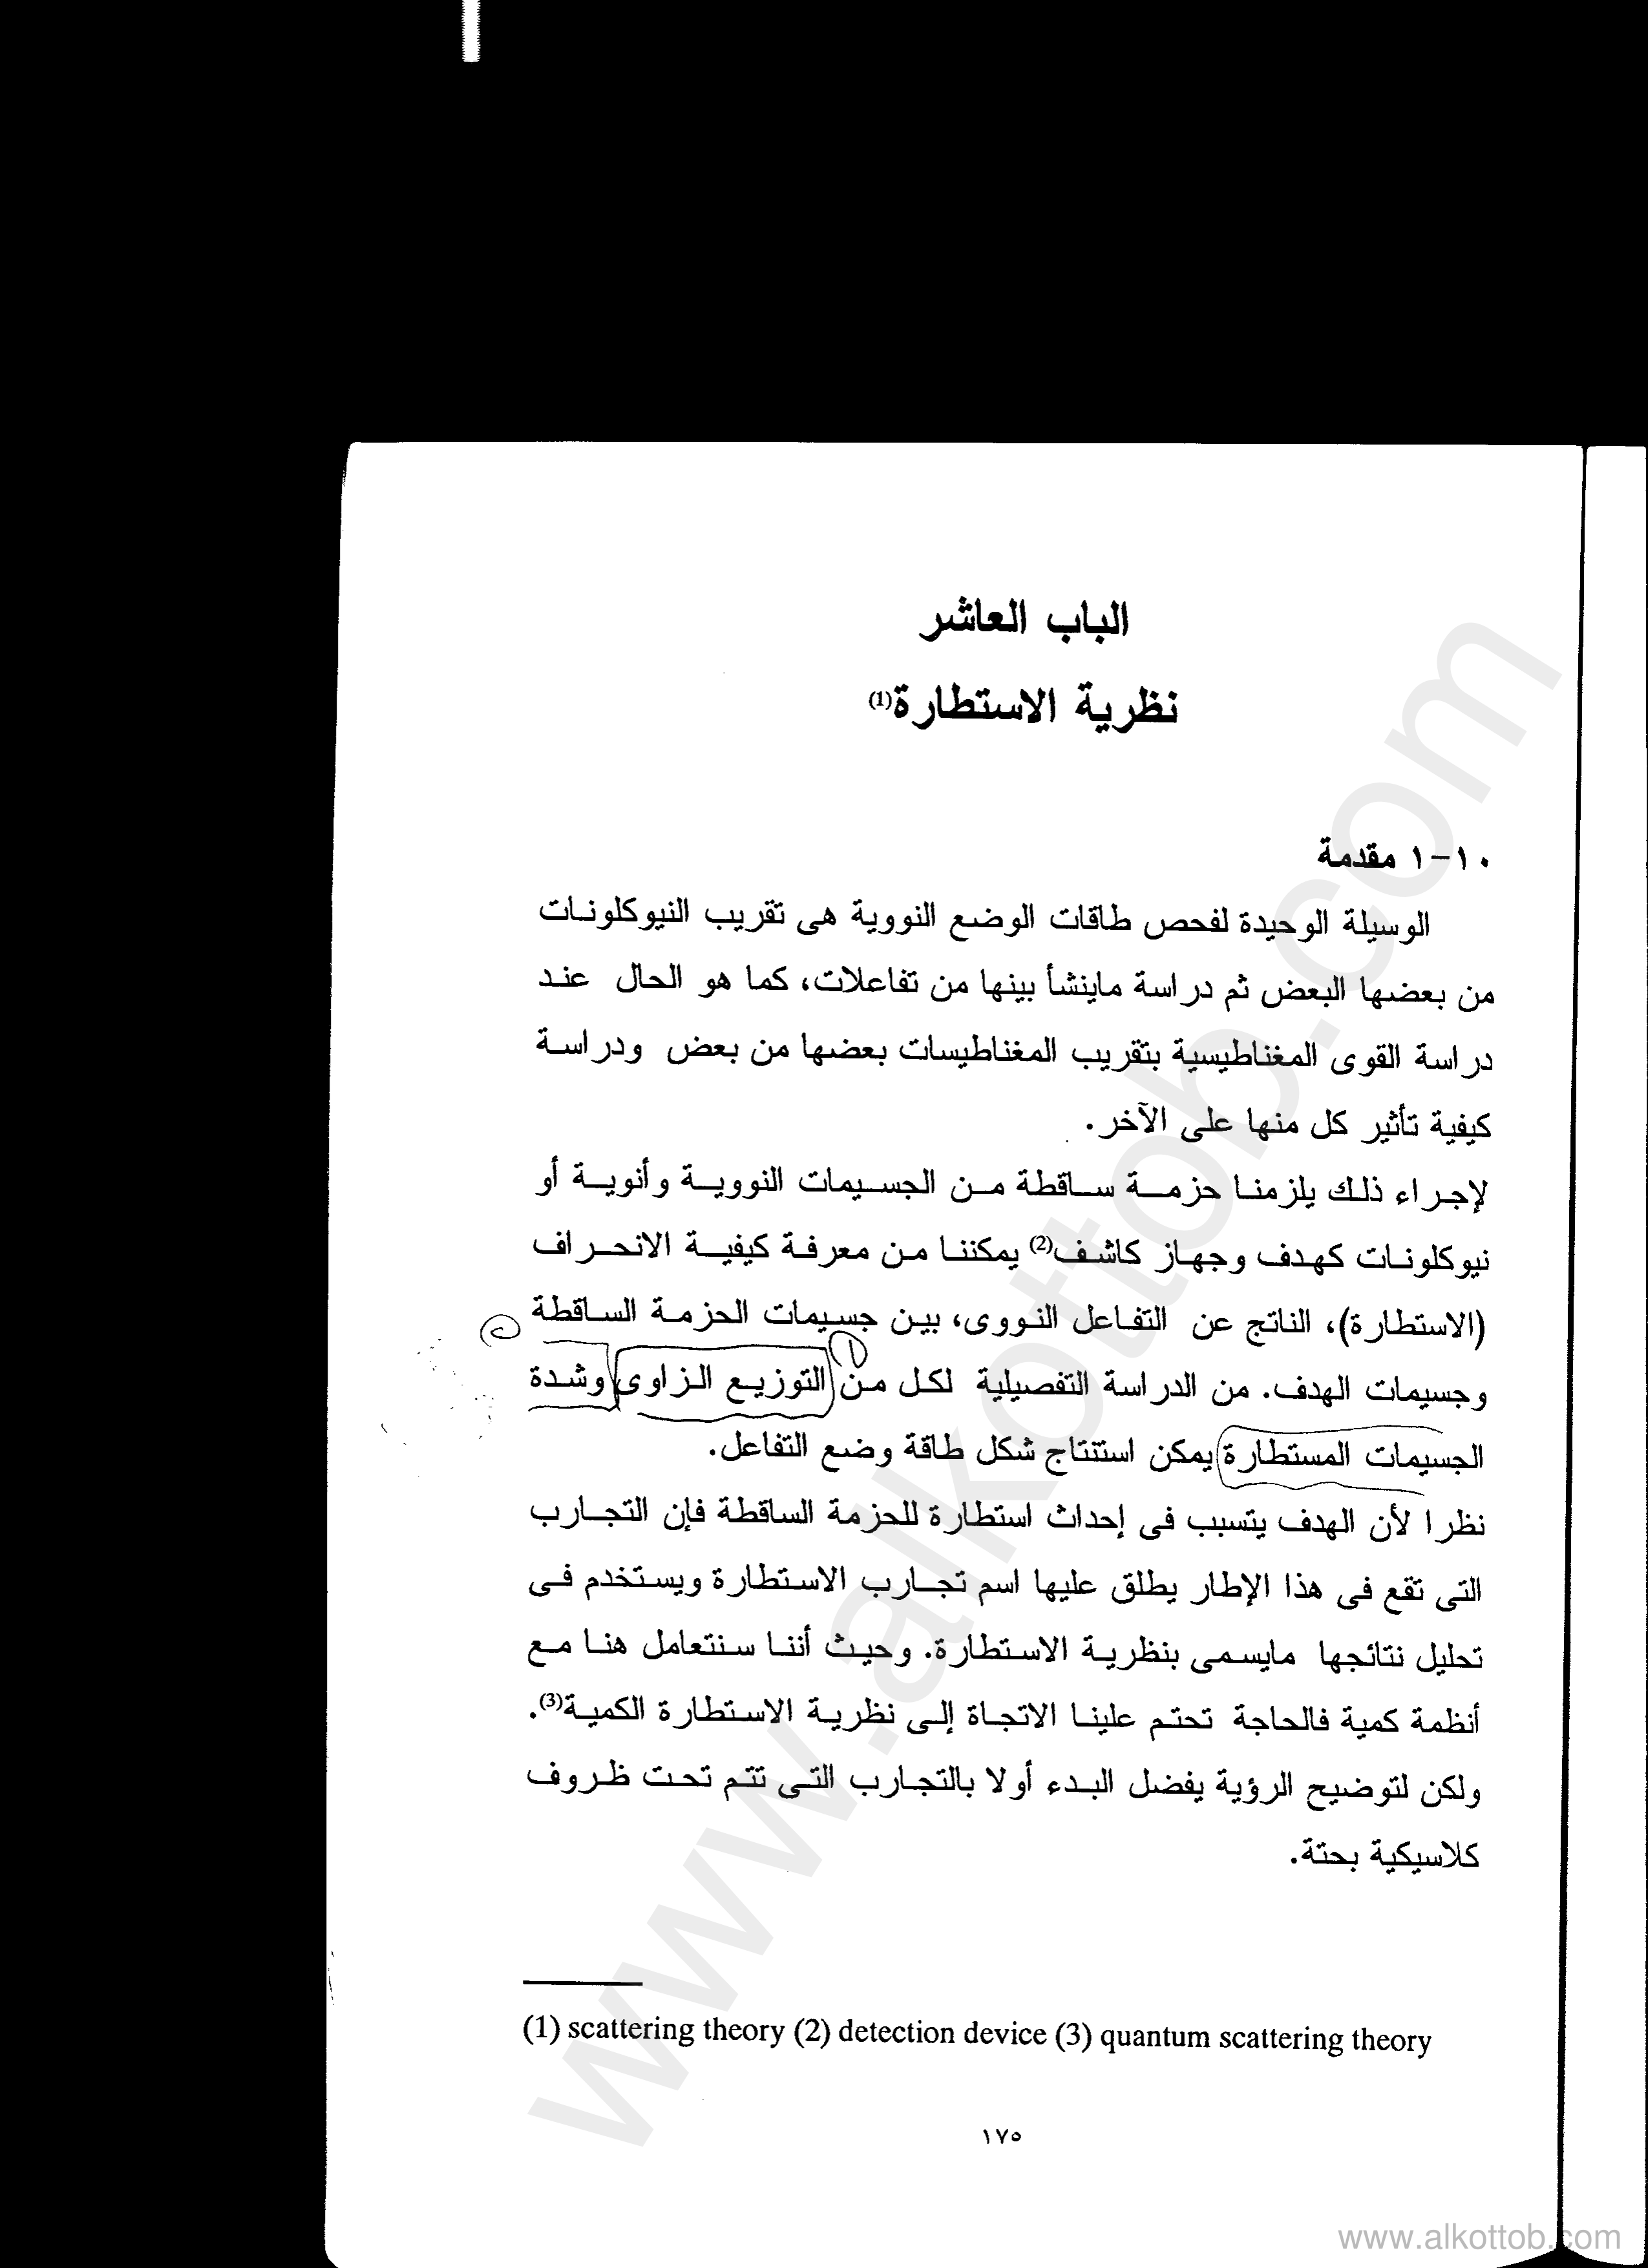 الباب العاشر
نظرية الاستطارة(1)
١٠-١ مقدمة
الوسيلة الوحيدة لفحص طاقات الوضع النووية هى تقريب النيوكلونات
من بعضها البعض ثم دراسة ماينشأ بينها من تفاعلات، كما هو الحال عند
دراسة القوى المغناطيسية بتقريب المغناطيسات بعضها من بعض ودراسة
كيفية تأثير كل منها على الآخر.
لإجراء ذلك يلزمنا حزمة ساقطة من الجسيمات النووية وأنوية أو
نيوكلونات كهدف وجهاز كاشف(2) يمكننا من معرفة كيفية الانحراف
(الاستطارة)، الناتج عن التفاعل النووى، بين جسيمات الحزمة الساقطة
وجسيمات الهدف. من الدراسة التفصيلية لكل من التوزيع الزاوى وشدة
الجسيمات المستطارة يمكن استنتاج شكل طاقة وضع التفاعل.
نظرا لأن الهدف يتسبب فى إحداث استطارة للحزمة الساقطة فإن التجارب
التى تقع فى هذا الإطار يطلق عليها اسم تجارب الاستطارة ويستخدم فى
تحليل نتائجها مايسمى بنظرية الاستطارة. وحيث أننا سنتعامل هنا مع
أنظمة كمية فالحاجة تحتم علينا الاتجاة إلى نظرية الاستطارة الكمية(3).
ولكن لتوضيح الرؤية يفضل البدء أولا بالتجارب التى تتم تحت ظروف
كلاسيكية بحتة.
(1) scattering theory (2) detection device (3) quantum scattering theory
١٧٥
www.alkottob.com
www.alkottob.com